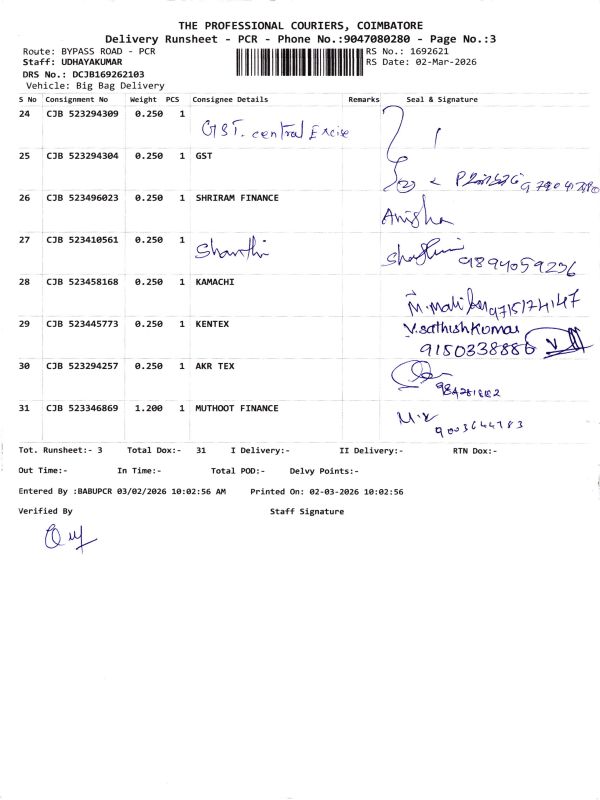 THE PROFESSIONAL COURIERS, COIMBATORE
Delivery Runsheet - PCR - Phone No.:9047080280 - Page No.:3
Route: BYPASS ROAD - PCR
RS No.: 1692621
Staff: UDHAYAKUMAR
RS Date: 02-Mar-2026
DRS No.: DCJB169262103
Vehicle: Big Bag Delivery
S No Consignment No Weight PCS Consignee Details Remarks Seal & Signature
24 CJB 523294309 0.250 1 GST. central Excise
25 CJB 523294304 0.250 1 GST
26 CJB 523496023 0.250 1 SHRIRAM FINANCE Anisha
27 CJB 523410561 0.250 1 Shanthi 9894059236
28 CJB 523458168 0.250 1 KAMACHI 9715174147
29 CJB 523445773 0.250 1 KENTEX V.sathish Kumar
9150338886
30 CJB 523294257 0.250 1 AKR TEX
31 CJB 523346869 1.200 1 MUTHOOT FINANCE
Tot. Runsheet:- 3 Total Dox:- 31 I Delivery:- II Delivery:- RTN Dox:-
Out Time:- In Time:- Total POD:- Delvy Points:-
Entered By :BABUPCR 03/02/2026 10:02:56 AM Printed On: 02-03-2026 10:02:56
Verified By Staff Signature